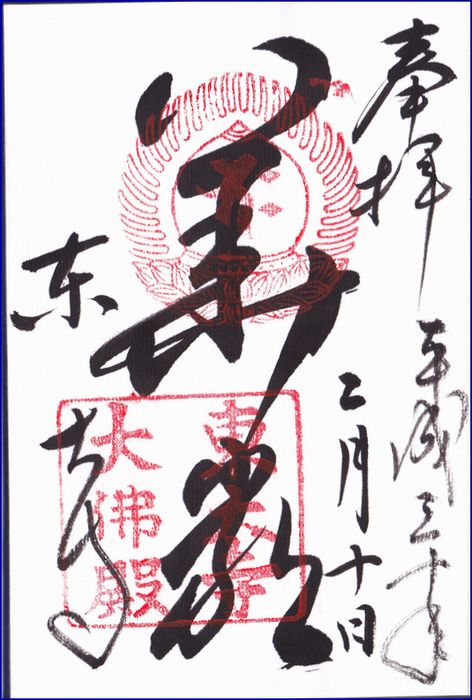 奉拝
平成三十年
二月十日
華嚴
東大寺
東大寺
大佛殿